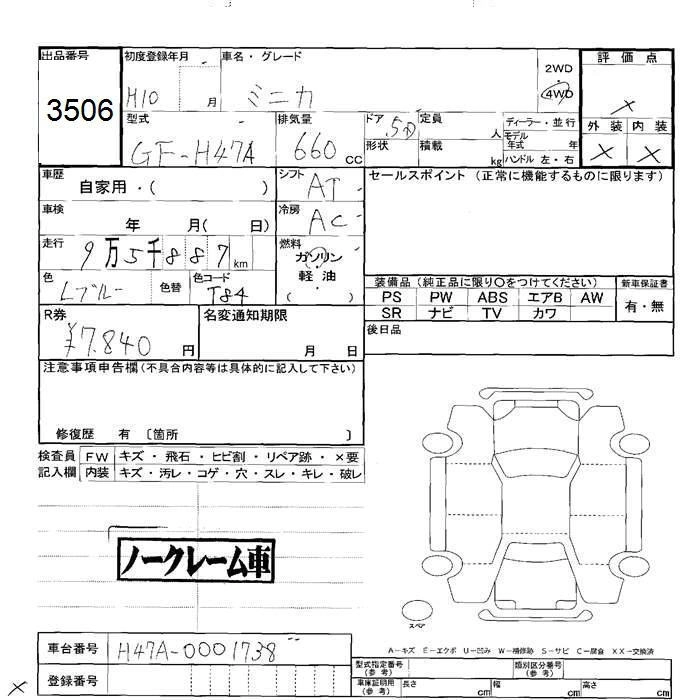 出品番号
3506
初度登録年月
H10 月
車名・グレード
ミニカ
2WD
・
4WD
評価点
×
外装 内装
× ×
型式
GF-H47A
排気量
660 cc
ドア 5D
形状
定員 人
積載 kg
ディーラー・並行
モデル
年式 年
ハンドル 左・右
車歴
自家用・( )
シフト AT
車検
年 月( 日)
冷房 AC
走行
9万5千887 km
燃料
ガソリン
・
軽油
( )
色
Lブルー
色替
色コード
T84
セールスポイント(正常に機能するものに限ります)
装備品(純正品に限り〇をつけてください)
PS PW ABS エアB AW
SR ナビ TV カワ
新車保証書
有・無
後日品
R券
¥7.840 円
名変通知期限
月 日
注意事項申告欄(不具合内容等は具体的に記入して下さい)
修復歴 有 〔箇所 〕
検査員 FW キズ・飛石・ヒビ割・リペア跡・×要
記入欄 内装 キズ・汚レ・コゲ・穴・スレ・キレ・破レ
ノークレーム車
スペア
A-キズ E-エクボ U-凹み W-補修跡 S-サビ C-腐食 XX-交換済
車台番号 H47A-0001738
登録番号
×
型式指定番号
(参考)
類別区分番号
(参考)
車庫証明用
(参考)
長さ cm 幅 cm 高さ cm